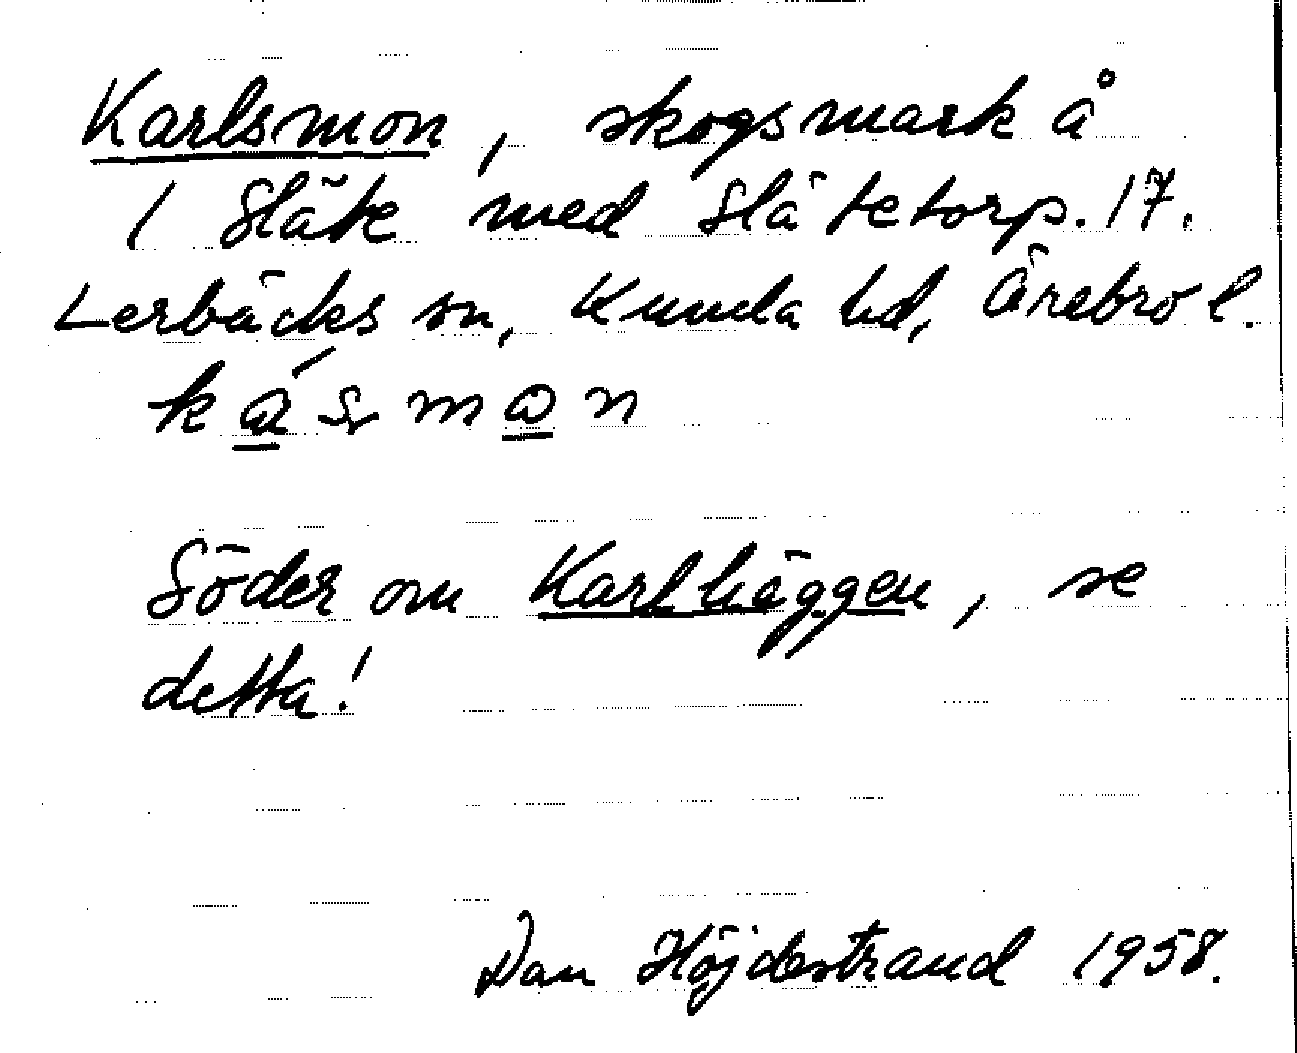 Karlsmon, skogsmark å
1 Släte med Slätetorp. 17.
Lerbäcks sn, Kumla hd, Örebro l.
ká̲s̩mo̲n
Söder om Karlhäggen, se
detta!
Dan Höjdestrand 1958.